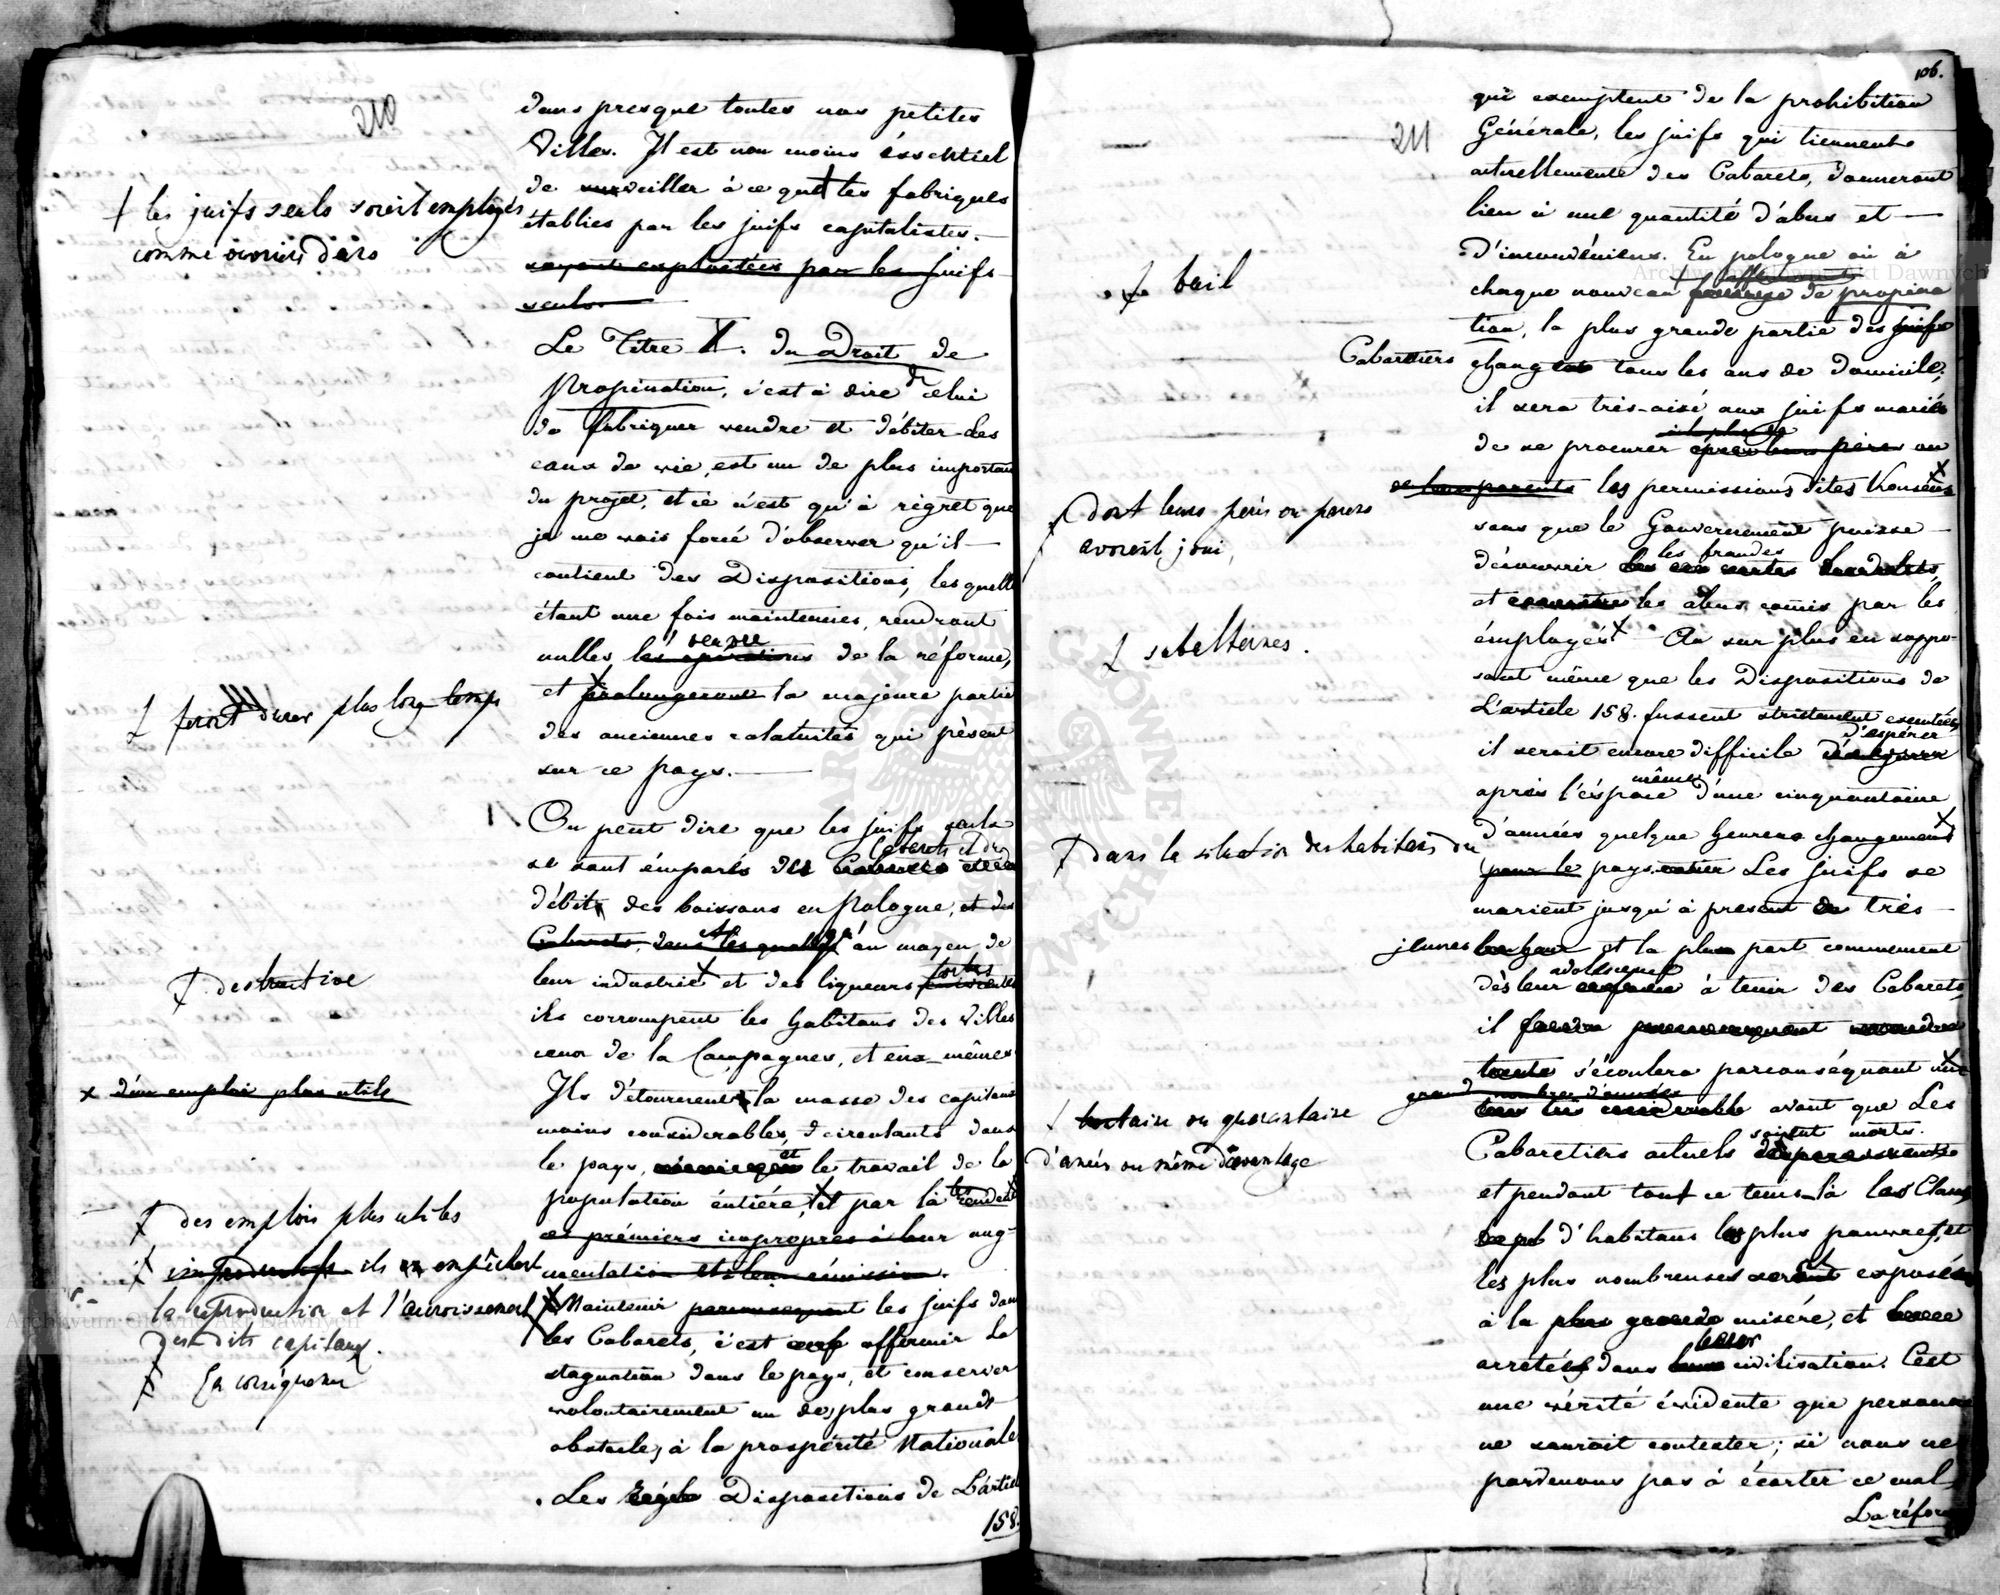 210
dans presque toutes nos petites
Villes. Il est non moins éssentiel
de surveiller à ce que + les fabriques
établies par les juifs capitalistes.
soyent exploitées par les Juifs
seuls.
+ les juifs seuls soient employés
comme ouvriers dans
Le Titre X. du Droit de
Propination, c'est à dire de celui
de fabriquer vendre et débiter des
eaux de vie, est un de plus important
du projet, et ce n'est qu'à régret que
je me vois forcé d'observer qu'il
contient des Dispositions, lesquelles
étant une fois maintenues, rendront
nulles, les opérations de la réforme,
et prolongeront la majeure partie
des anciennes calamités qui pèsent
sur ce pays.
feront durer plus long-temps
On peut dire que les juifs seuls
se sont émparés des Cabarets et du
débit des boissons en Pologne, et des
Cabarets, dans lesquels au moyen de
leur industrie + et des liqueurs fortes
ils corrompent les habitans des villes
ceux de la Campagnes, et eux-mêmes
+ destructive
Ils détournent la masse des capitaux
moins considerables, circulants dans
le pays, et le travail de la
population éntiére, + et par là rendent
ces prémiers impropres à leur aug-
mentation et à leur émission.
x d'un emploi plus utile
+ des emplois plus utiles
+ improductifs ils en empêchent
la reproduction et l'accroissement
des dits capitaux.
+ En conséquence
Maintenir parconsequent les juifs dans
les Cabarets, c'est affermir la
stagnation dans le pays, et conserver
volontairement un des plus grands
obstacles, à la prospérité Nationale
Les Dispositions de L'article
158.
106.
211
qui exemptent de la prohibition
Générale, les juifs qui tiennent
actuellement des Cabarets, donneront
lieu à une quantité d'abus et
d'inconvéniens. En pologne où à
chaque nouveau de propina
tion, la plus grande partie des juifs
+ bail
Cabaretiers changent tous les ans de Domicile,
il sera très-aisé aux juifs mariés
de se procurer après leurs pères ou
de leurs parents les permissions dites Konsens
+ dont leurs pères ou parens
avoient joui,
sans que le Gouvernement puisse
découvrir les fraudes
et les abus comis par les
émployés + Au sur plus en suppo-
sant même que les Dispositions de
+ subalternes.
L'article 158. fussent strictement executées,
il seroit encore difficile d'espérer
après l'éspace même d'une cinquantaine
d'années quelque heureux changement
pour le pays entier Les juifs se
+ dans la situation des habitans du
marient jusqu'à présent très
jeunes et la plus part commencent
dès leur adolescence à tenir des Cabarets,
il
s'écoulera parconséquant une
grand nombre d'années avant que Les
+ trentaine ou quarantaine
d'années ou même davantage
Cabaretiers actuels soient morts.
et pendant tout ce tems-là les Classes
d'habitans les plus pauvres, et
les plus nombreuses seront exposées
à la plus grande misére, et
arretées dans leur civilisation. C'est
une vérité évidente que personne
ne sauroit contester; si nous ne
parvenons pas à écarter ce mal
La réforme
Archiwum Główne Akt Dawnych